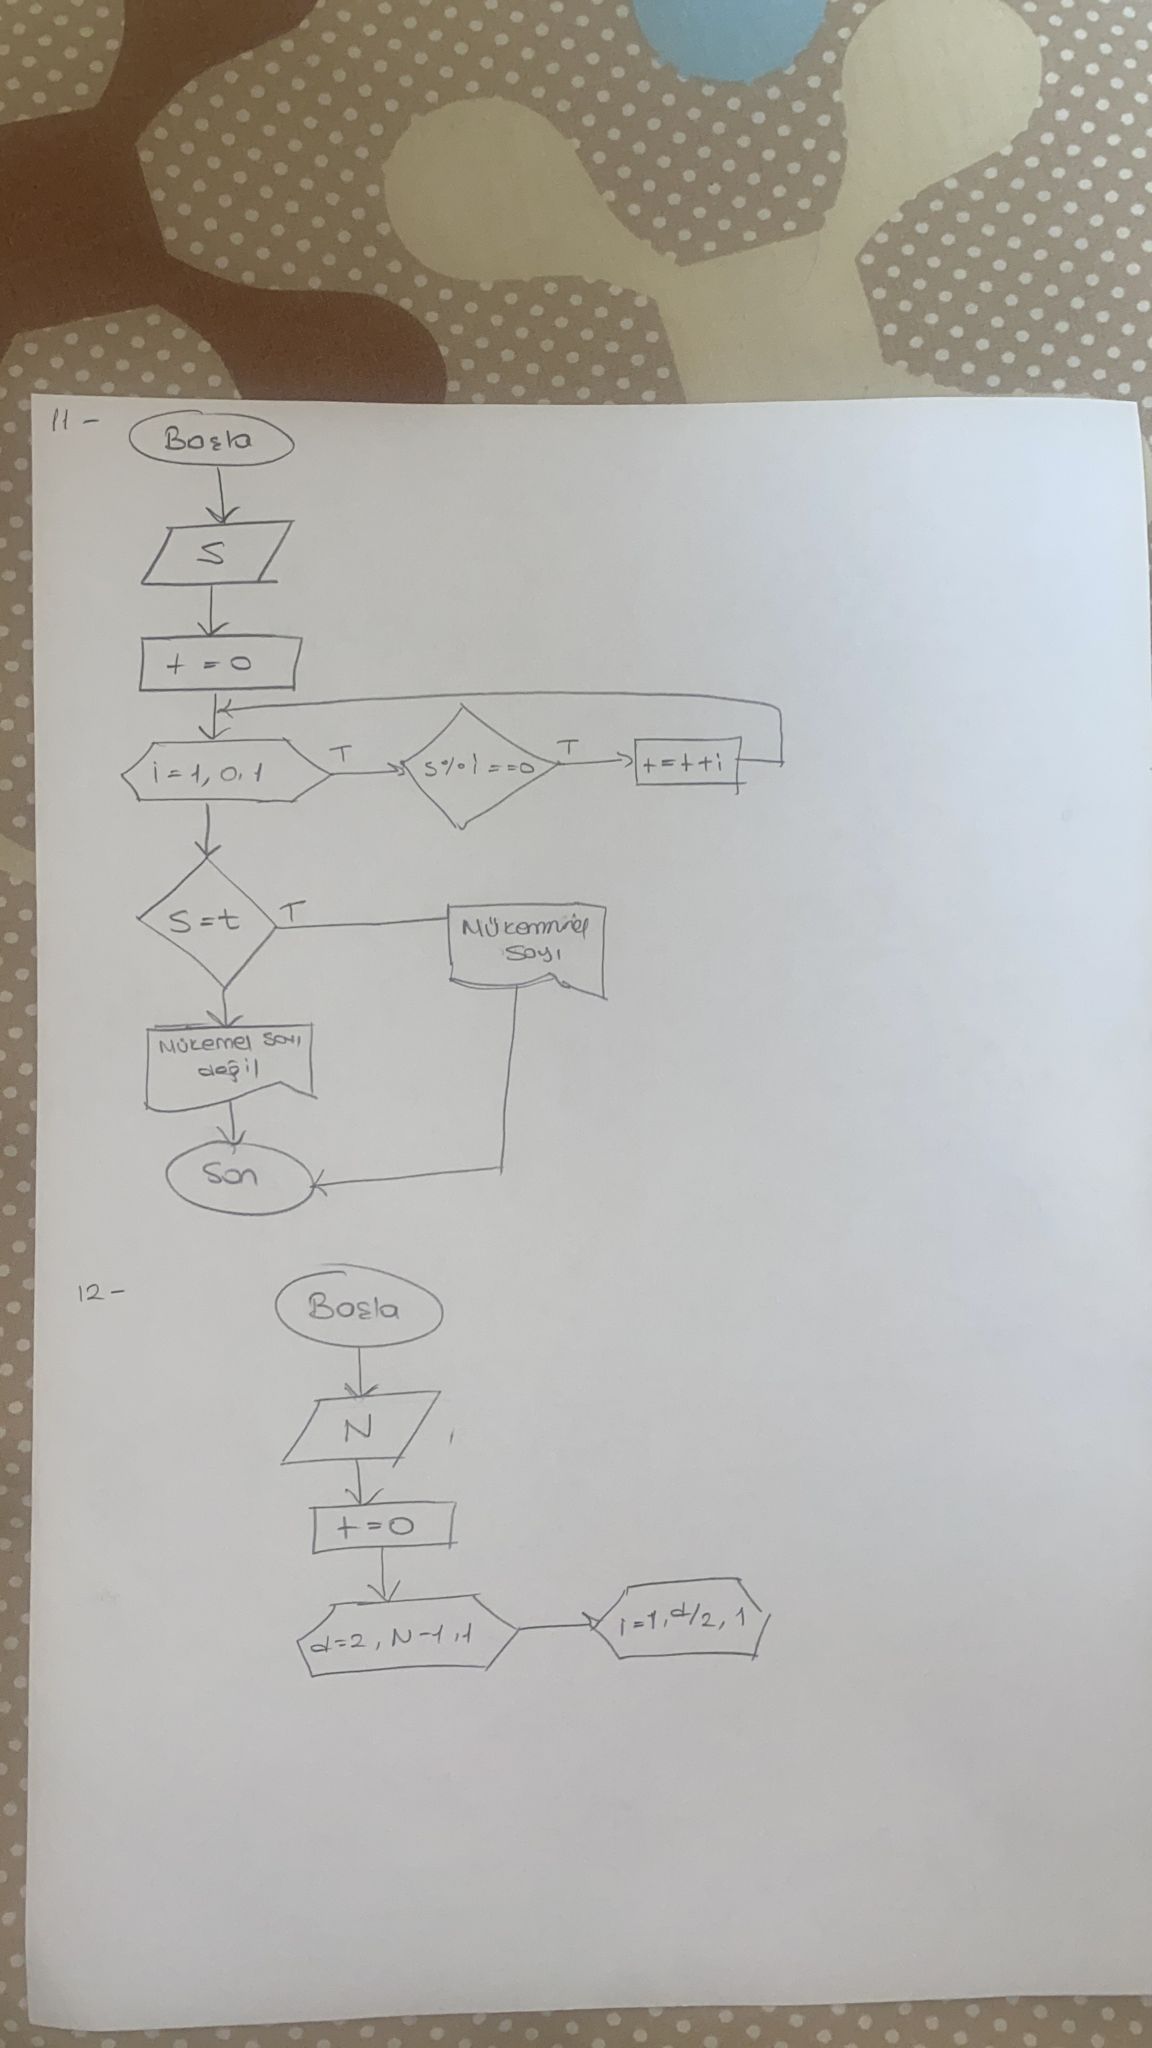 11 -
Başla
S
t = 0
i = 1, 0, 1
T
S % i == 0
T
t = t + i
S = t
T
Mükemmel
Sayı
Mükemel Sayı
değil
Son
12 -
Başla
N
t = 0
d = 2, N - 1, 1
i = 1, d/2, 1